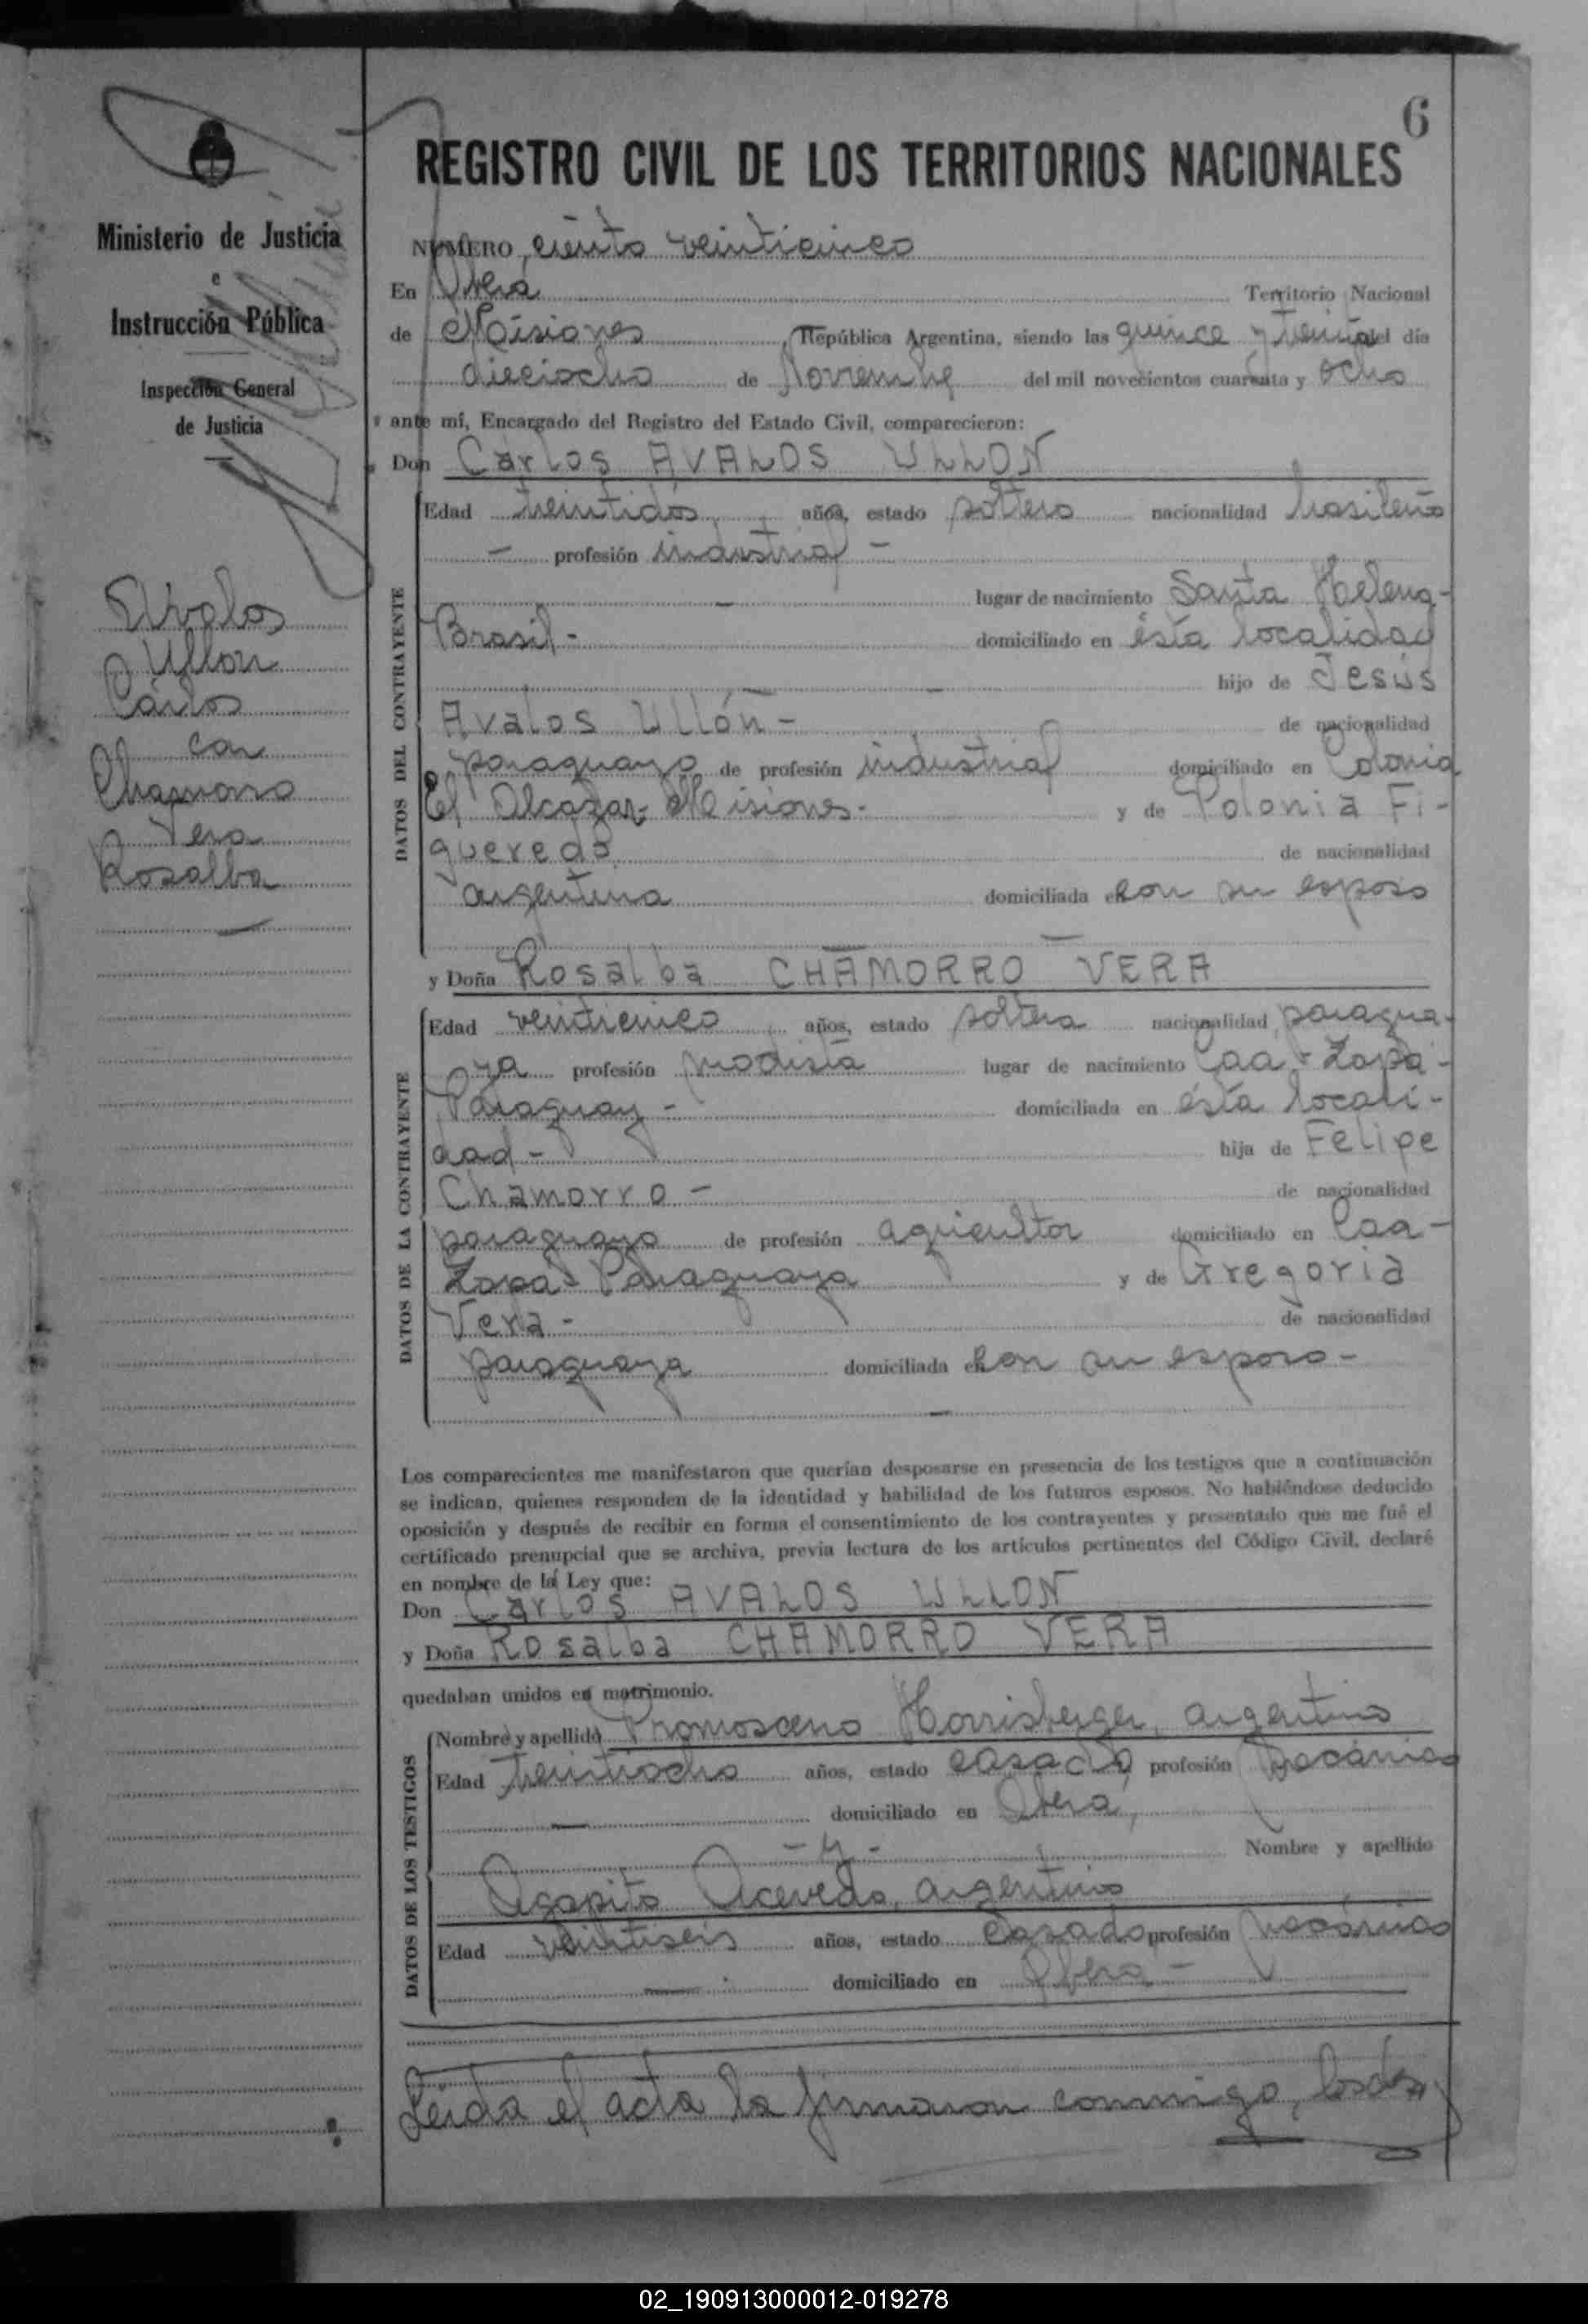 6
REGISTRO CIVIL DE LOS TERRITORIOS NACIONALES
Ministerio de Justicia
e
Instrucción Pública
Inspección General
de Justicia
Avalos
Ullon
Carlos
con
Chamorro
Vera
Rosalba
NUMERO ciento veinticinco
En Oberá Territorio Nacional
de Misiones, República Argentina, siendo las quince y treinta del día
dieciocho de Noviembre del mil novecientos cuarenta y ocho
ante mí, Encargado del Registro del Estado Civil, comparecieron:
Don Carlos AVALOS ULLON
DATOS DEL CONTRAYENTE
Edad treintidós años, estado soltero nacionalidad brasileño
— profesión industrial —
lugar de nacimiento Santa Helena-
Brasil - domiciliado en ésta localidad
— hijo de Jesús
Avalos Ullón - de nacionalidad
paraguayo de profesión industrial domiciliado en Colonia
El Alcazar- Misiones- y de Polonia Fi-
gueredo de nacionalidad
argentina domiciliada con su esposo
y Doña Rosalba CHAMORRO VERA
DATOS DE LA CONTRAYENTE
Edad veinticinco años, estado soltera nacionalidad paragua-
ya profesión modista lugar de nacimiento Caa-Zapá-
Paraguay - domiciliada en ésta locali-
dad - hija de Felipe
Chamorro - de nacionalidad
paraguayo de profesión agricultor domiciliado en Caa-
Zapa- Paraguaya y de Gregoria
Vera - de nacionalidad
paraguaya domiciliada con su esposo -
Los comparecientes me manifestaron que querían desposarse en presencia de los testigos que a continuación
se indican, quienes responden de la identidad y habilidad de los futuros esposos. No habiéndose deducido
oposición y después de recibir en forma el consentimiento de los contrayentes y presentado que me fué el
certificado prenupcial que se archiva, previa lectura de los artículos pertinentes del Código Civil, declaré
en nombre de la Ley que:
Don Carlos AVALOS ULLON
y Doña Rosalba CHAMORRO VERA
quedaban unidos en matrimonio.
DATOS DE LOS TESTIGOS
Nombre y apellido argentino
Edad treintiocho años, estado casado profesión mecánico
— domiciliado en Oberá,
- y - Nombre y apellido
Agapito Acevedo, argentino
Edad veintiseis años, estado casado profesión mecánico
— domiciliado en Oberá -
Leída el acta la firmaron conmigo, los des
02_190913000012-019278